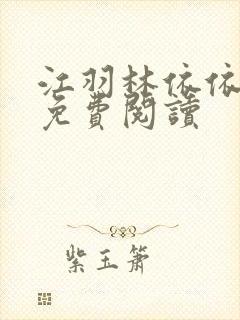 江羽林依依
免費閱讀
紫玉簫